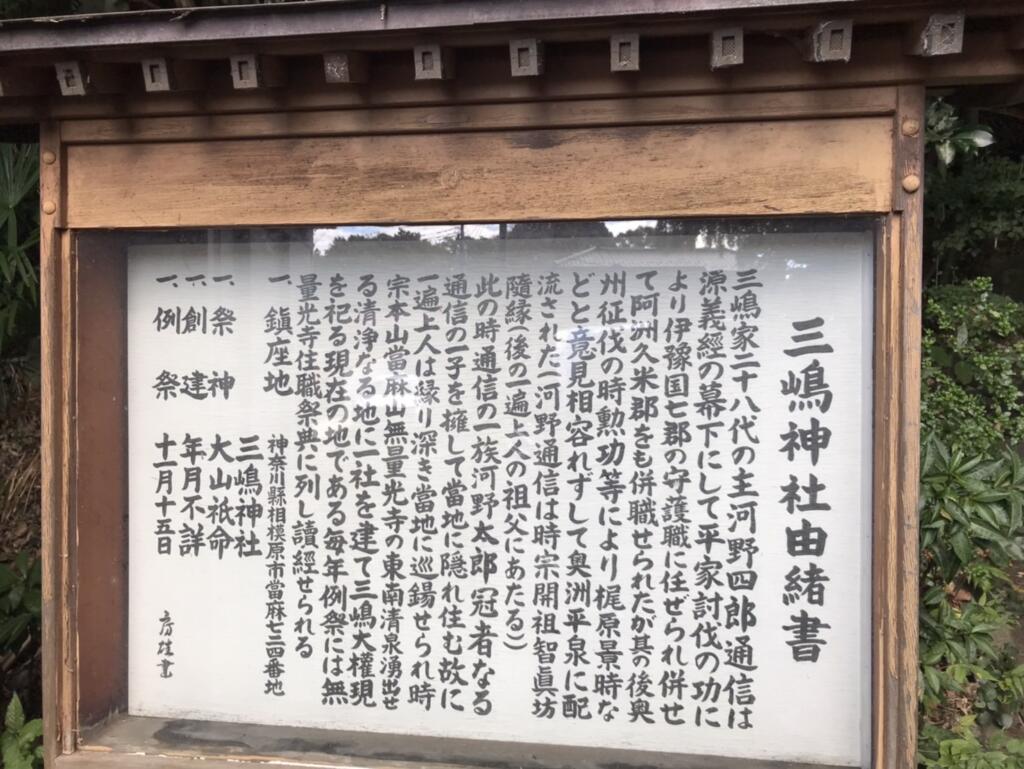 三嶋神社由緒書
三嶋家二十八代の主河野四郎通信は
源義經の幕下にして平家討伐の功に
より伊豫国七郡の守護職に任ぜられ併せ
て阿洲久米郡をも併職せられたが其の後奥
州征伐の時勲功等により梶原景時な
どと意見相容れずして奥洲平泉に配
流された河野通信は時宗開祖智眞坊
隨縁(後の一遍上人の祖父にあたる)
此の時通信の一族河野太郎冠者なる
通信の一子を擁して當地に隠れ住む故に
一遍上人は縁り深き當地に巡錫せられ時
宗本山當麻山無量光寺の東南清泉湧出せ
る清浄なる地に一社を建て三嶋大権現
を祀る現在の地である毎年例祭には無
量光寺住職祭典に列し讀經せられる
一、鎮座地 神奈川縣相模原市當麻二四番地
三嶋神社
一、祭神 大山祇命
一、創建 年月不詳
一、例祭 十一月十五日